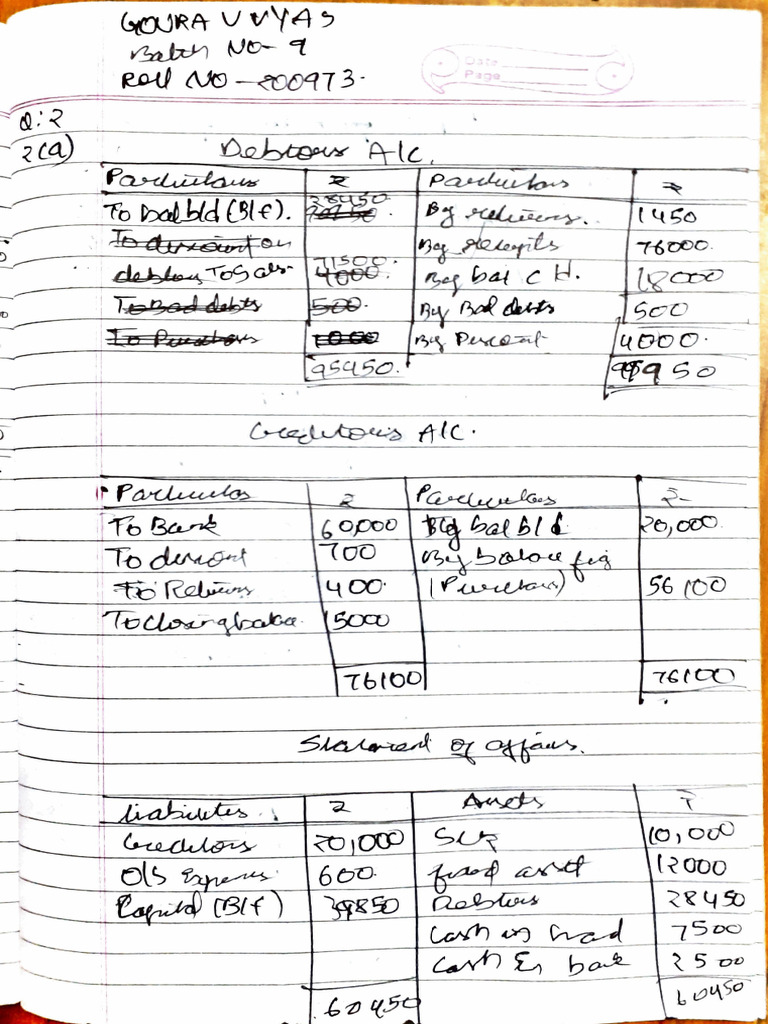 GOURAV VYAS
Batch NO- 9
Roll NO - 200973.
Date
Page
Q:2
2(a) Debtors A/C.
Particulars ₹ Particulars ₹
To bal b/d (B/f). 28450 By returns. 1450
To discount on By receipts 76000
debtors To Sales 71500 4000 By bal c/d. 18000
To Bad debts 500 By Bad debts 500
To Purchases 1000 By Discount 4000.
95450. 99950
Creditors A/C.
Particulars ₹ Particulars ₹
To Bank 60,000 By bal b/d 20,000
To discount 700 By balance fig
To Returns 400 (Purchases) 56100
To closing balance 15000
76100 76100
Statement of affairs.
Liabilities ₹ Assets ₹
Creditors 20,000 10,000
O/S Expenses 600 fixed asset 12000
Capital (B/f) 39850 Debtors 28450
Cash in hand 7500
Cash in bank 2500
60450 60450